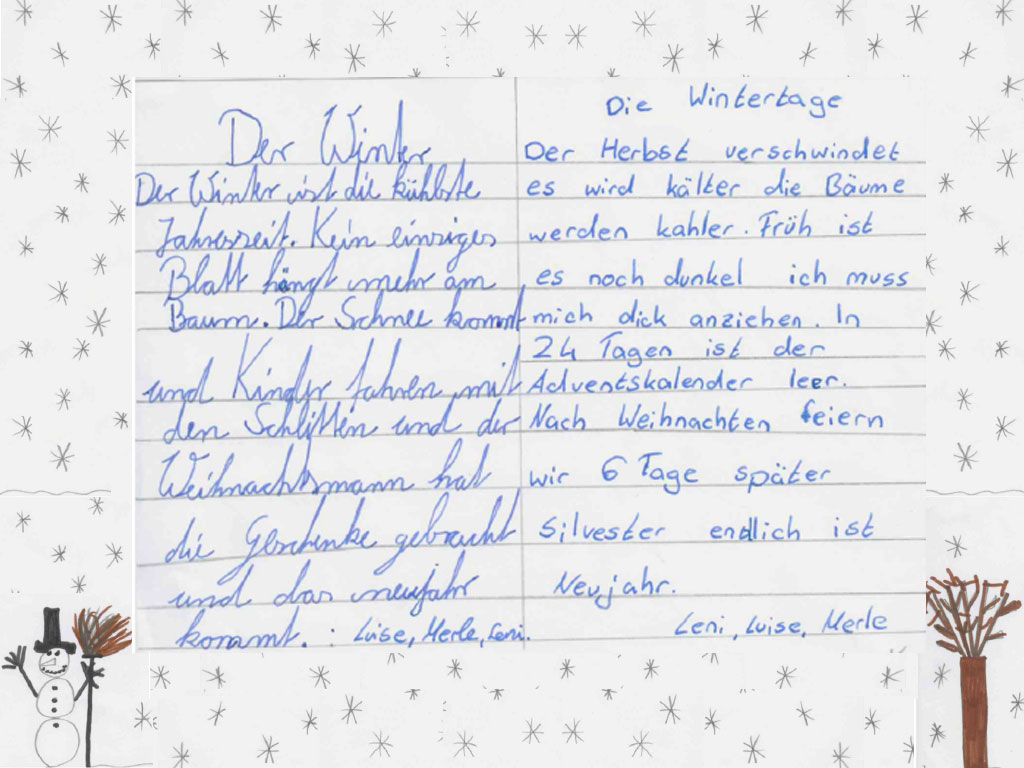 Der Winter
Der Winter ist die kühlste
Jahreszeit. Kein einziges
Blatt hängt mehr am
Baum. Der Schnee kommt
und Kinder fahren mit
den Schlitten und der
Weihnachtsmann hat
die Geschenke gebracht
und das neujahr
kommt. : Luise, Merle, Leni.
Die Wintertage
Der Herbst verschwindet
es wird kälter die Bäume
werden kahler. Früh ist
es noch dunkel ich muss
mich dick anziehen. In
24 Tagen ist der
Adventskalender leer.
Nach Weihnachten feiern
wir 6 Tage später
Silvester endlich ist
Neujahr.
Leni, Luise, Merle